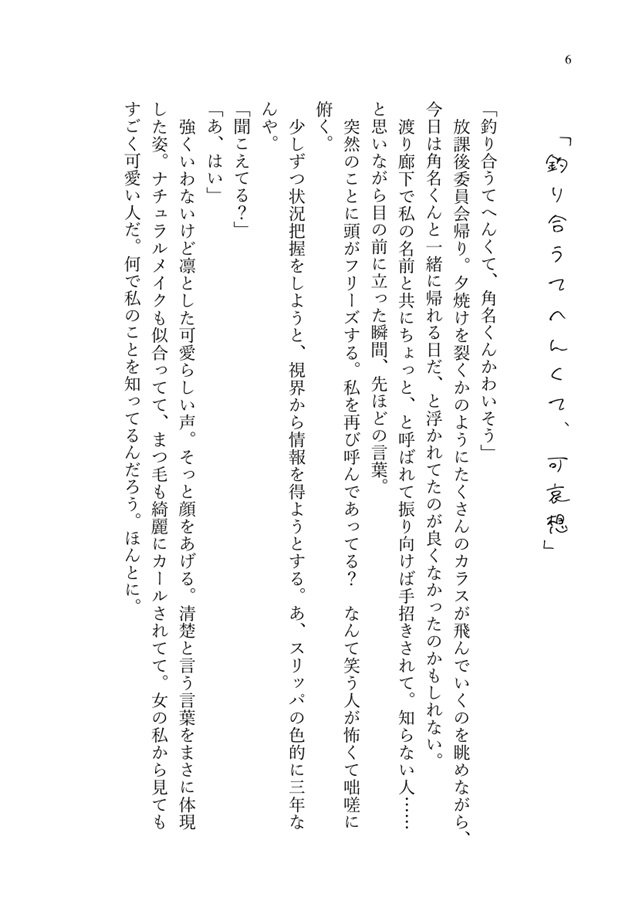 6
「釣り合うてへんくて、可哀想」
「釣り合うてへんくて、角名くんかわいそう」
放課後委員会帰り。夕焼けを裂くかのようにたくさんのカラスが飛んでいくのを眺めながら、
今日は角名くんと一緒に帰れる日だ、と浮かれてたのが良くなかったのかもしれない。
渡り廊下で私の名前と共にちょっと、と呼ばれて振り向けば手招きされて。知らない人……
と思いながら目の前に立った瞬間、先ほどの言葉。
突然のことに頭がフリーズする。私を再び呼んであってる？　なんて笑う人が怖くて咄嗟に
俯く。
少しずつ状況把握をしようと、視界から情報を得ようとする。あ、スリッパの色的に三年な
んや。
「聞こえてる？」
「あ、はい」
強くいわないけど凛とした可愛らしい声。そっと顔をあげる。清楚と言う言葉をまさに体現
した姿。ナチュラルメイクも似合ってて、まつ毛も綺麗にカールされてて。女の私から見ても
すごく可愛い人だ。何で私のことを知ってるんだろう。ほんとに。